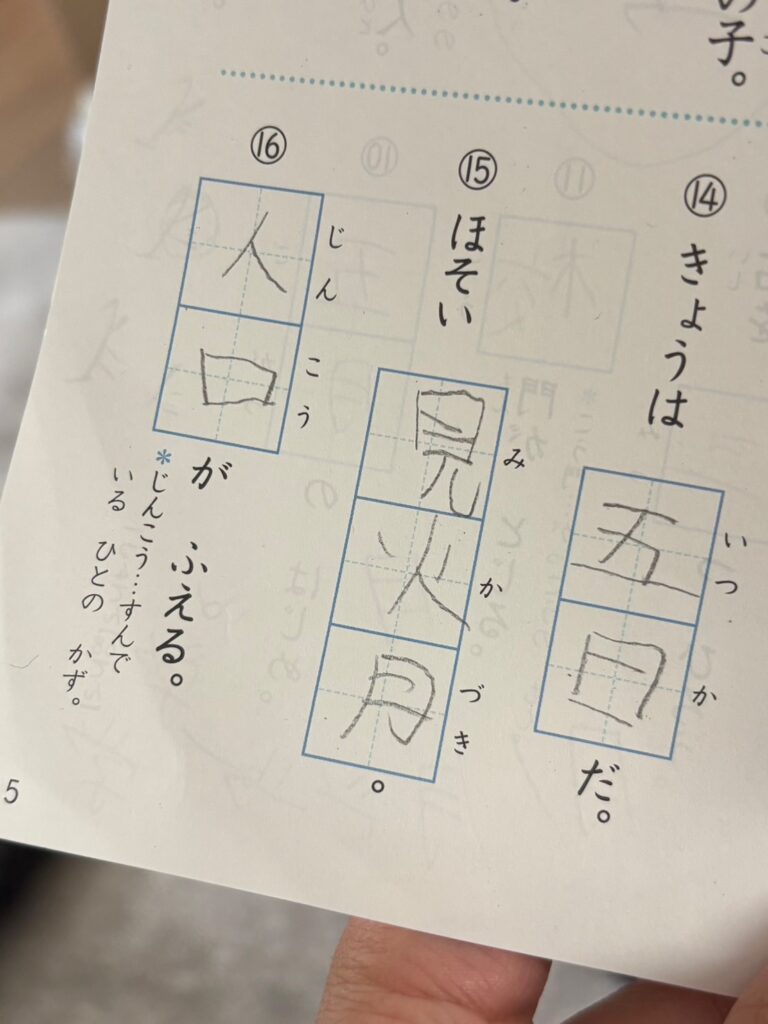 の子。
⑭ きょうは五日だ。
いつ
か
⑮ ほそい見火月。
み
か
づき
⑯ 人口が ふえる。
じん
こう
*じんこう…すんで
いる ひとの かず。
5